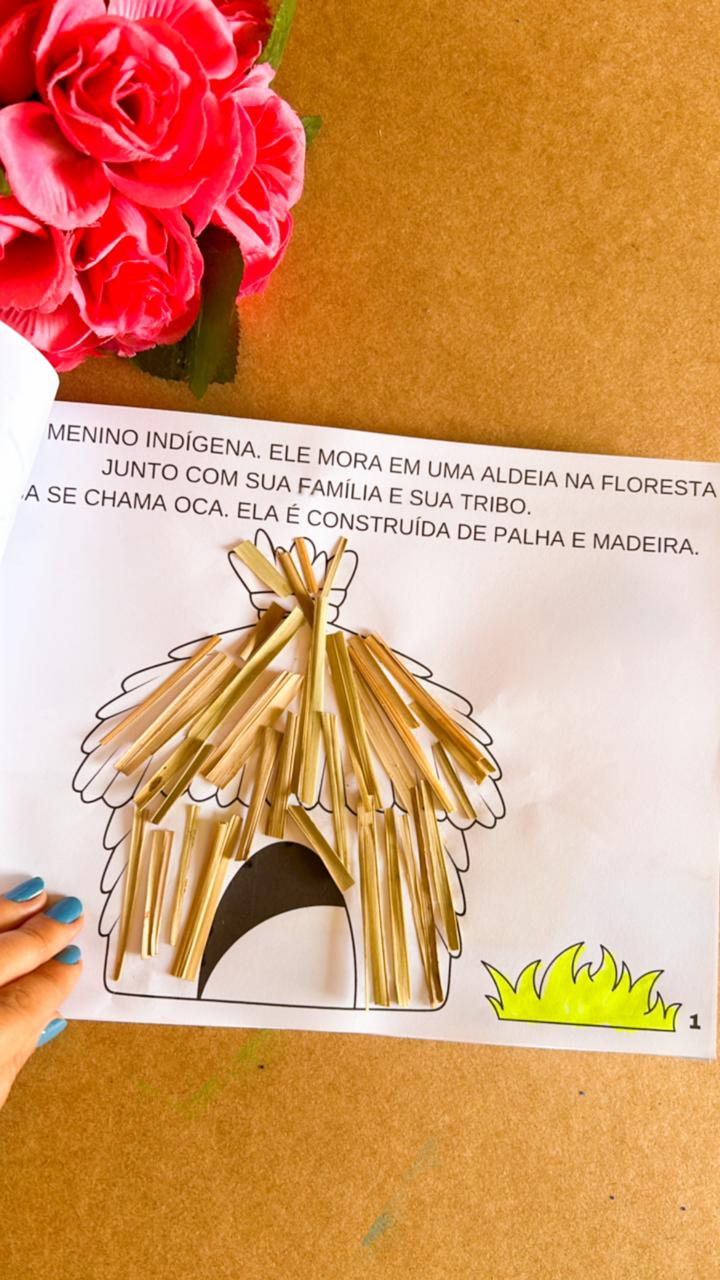 MENINO INDÍGENA. ELE MORA EM UMA ALDEIA NA FLORESTA
JUNTO COM SUA FAMÍLIA E SUA TRIBO.
SE CHAMA OCA. ELA É CONSTRUÍDA DE PALHA E MADEIRA.
1